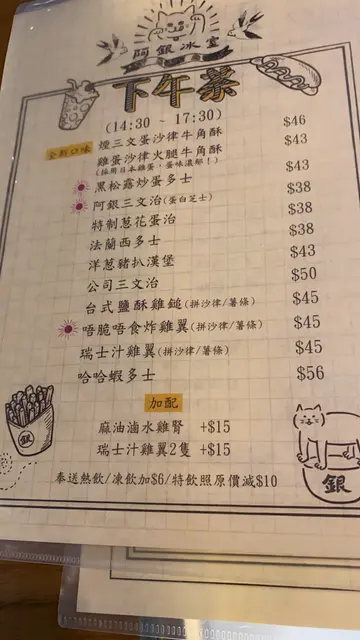 阿銀冰室
下午茶
(14:30 ~ 17:30)
全新口味
煙三文蛋沙律牛角酥 $46
雞蛋沙律火腿牛角酥 $43
(採用日本雞蛋，蛋味濃郁！)
黑松露炒蛋多士 $43
阿銀三文治(蛋白芝士) $38
特制蔥花蛋治 $38
法蘭西多士 $38
洋蔥豬扒漢堡 $43
公司三文治 $50
台式鹽酥雞鎚(拼沙律/薯條) $45
唔脆唔食炸雞翼(拼沙律/薯條) $45
瑞士汁雞翼(拼沙律/薯條) $45
哈哈蝦多士 $56
加配
麻油滷水雞腎 +$15
瑞士汁雞翼2隻 +$15
奉送熱飲/凍飲加$6/特飲照原價減$10
銀
銀